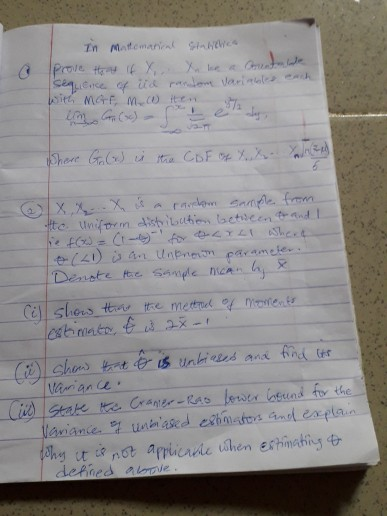 In Mathematical Statistics
① Prove that if X₁, ... Xₙ be a Countable
sequence of iid random variables each
with MGF, Mₓ(t) then
lim Gₙ(x) = ∫ 1/√2π e^(-y²/2) dy,
where Gₙ(x) is the CDF of X₁, X₂ ...
② X₁, X₂ ... X is a random sample from
the uniform distribution between θ and 1
ie f(x) = (1-θ)⁻¹ for θ < x < 1 where
θ (<1) is an unknown parameter.
Denote the sample mean by x̄
(i) show that the method of moments
estimator θ̂ is 2x̄ - 1
(ii) show that θ̂ is unbiased and find its
variance.
(iii) state the Cramer-Rao lower bound for the
variance of unbiased estimators and explain
why it is not applicable when estimating θ
defined above.